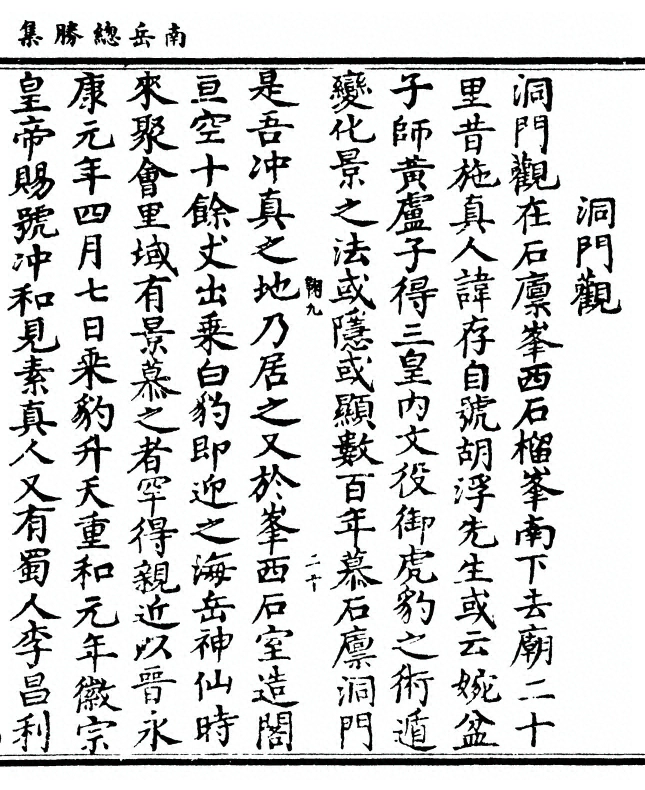 南岳總勝集
洞門觀
洞門觀在石廪峯西石榴峯南下去廟二十
里昔施真人諱存自號胡浮先生或云婉盆
子師黃盧子得三皇内文役御虎豹之術遁
變化景之法或隱或顯數百年慕石廪洞門
翔九
二十
是吾冲真之地乃居之又於峯西石室造閣
亘空十餘丈出乗白豹即迎之海岳神仙時
來聚會里域有景慕之者罕得親近以晉永
康元年四月七日乗豹升天重和元年徽宗
皇帝賜號冲和見素真人又有蜀人李昌利